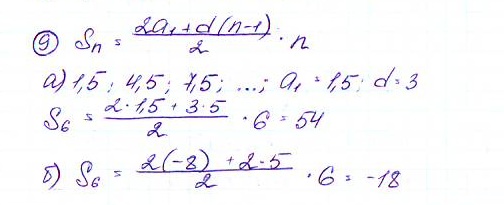 9) Sn = (2a₁ + d(n-1))/2 · n
а) 1,5; 4,5; 7,5; ...; a₁ = 1,5; d = 3
S₆ = (2·1,5 + 3·5)/2 · 6 = 54
б) S₆ = (2(-8) + 2·5)/2 · 6 = -18